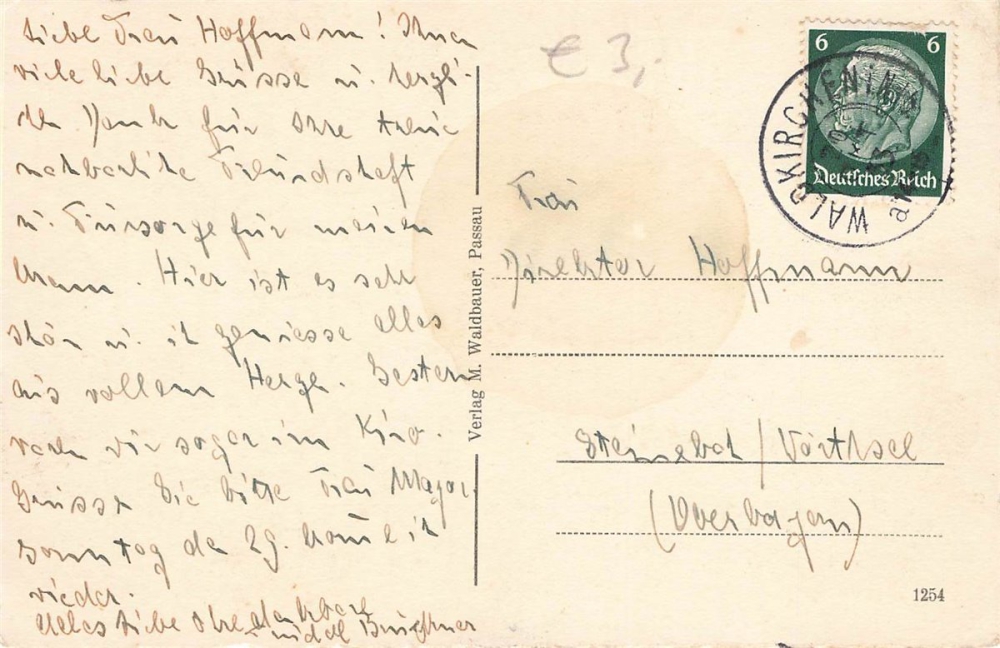 Liebe Frau Hoffmann! Ihnen
viele liebe Grüsse u. herzli-
chen Dank für Ihre treue
nachbarliche Freundschaft
u. Fürsorge für meinen
Mann. Hier ist es sehr
schön u. ich geniesse alles
aus vollem Herzen. Gestern
waren wir sogar im Kino.
Grüssen Sie bitte Frau Mayer.
Sonntag den 29. komme ich
wieder.
Alles Liebe Ihre dankbare
Verlag M. Waldbauer, Passau
€ 3,-
6 6
Deutsches Reich
WALDKIRCHEN
Frau
Direktor Hoffmann
Steinebach / Wörthsee
(Oberbayern)
1254